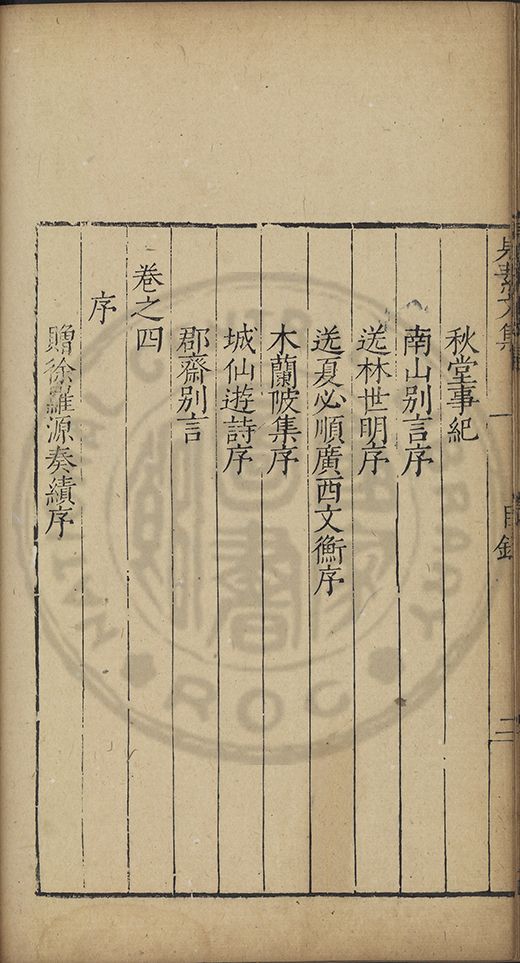 見素文集
目錄
二
秋堂事紀
南山别言序
送林世明序
送夏必順廣西文衡序
木蘭陂集序
城仙遊詩序
郡齋别言
卷之四
序
贈徐羅源奏績序